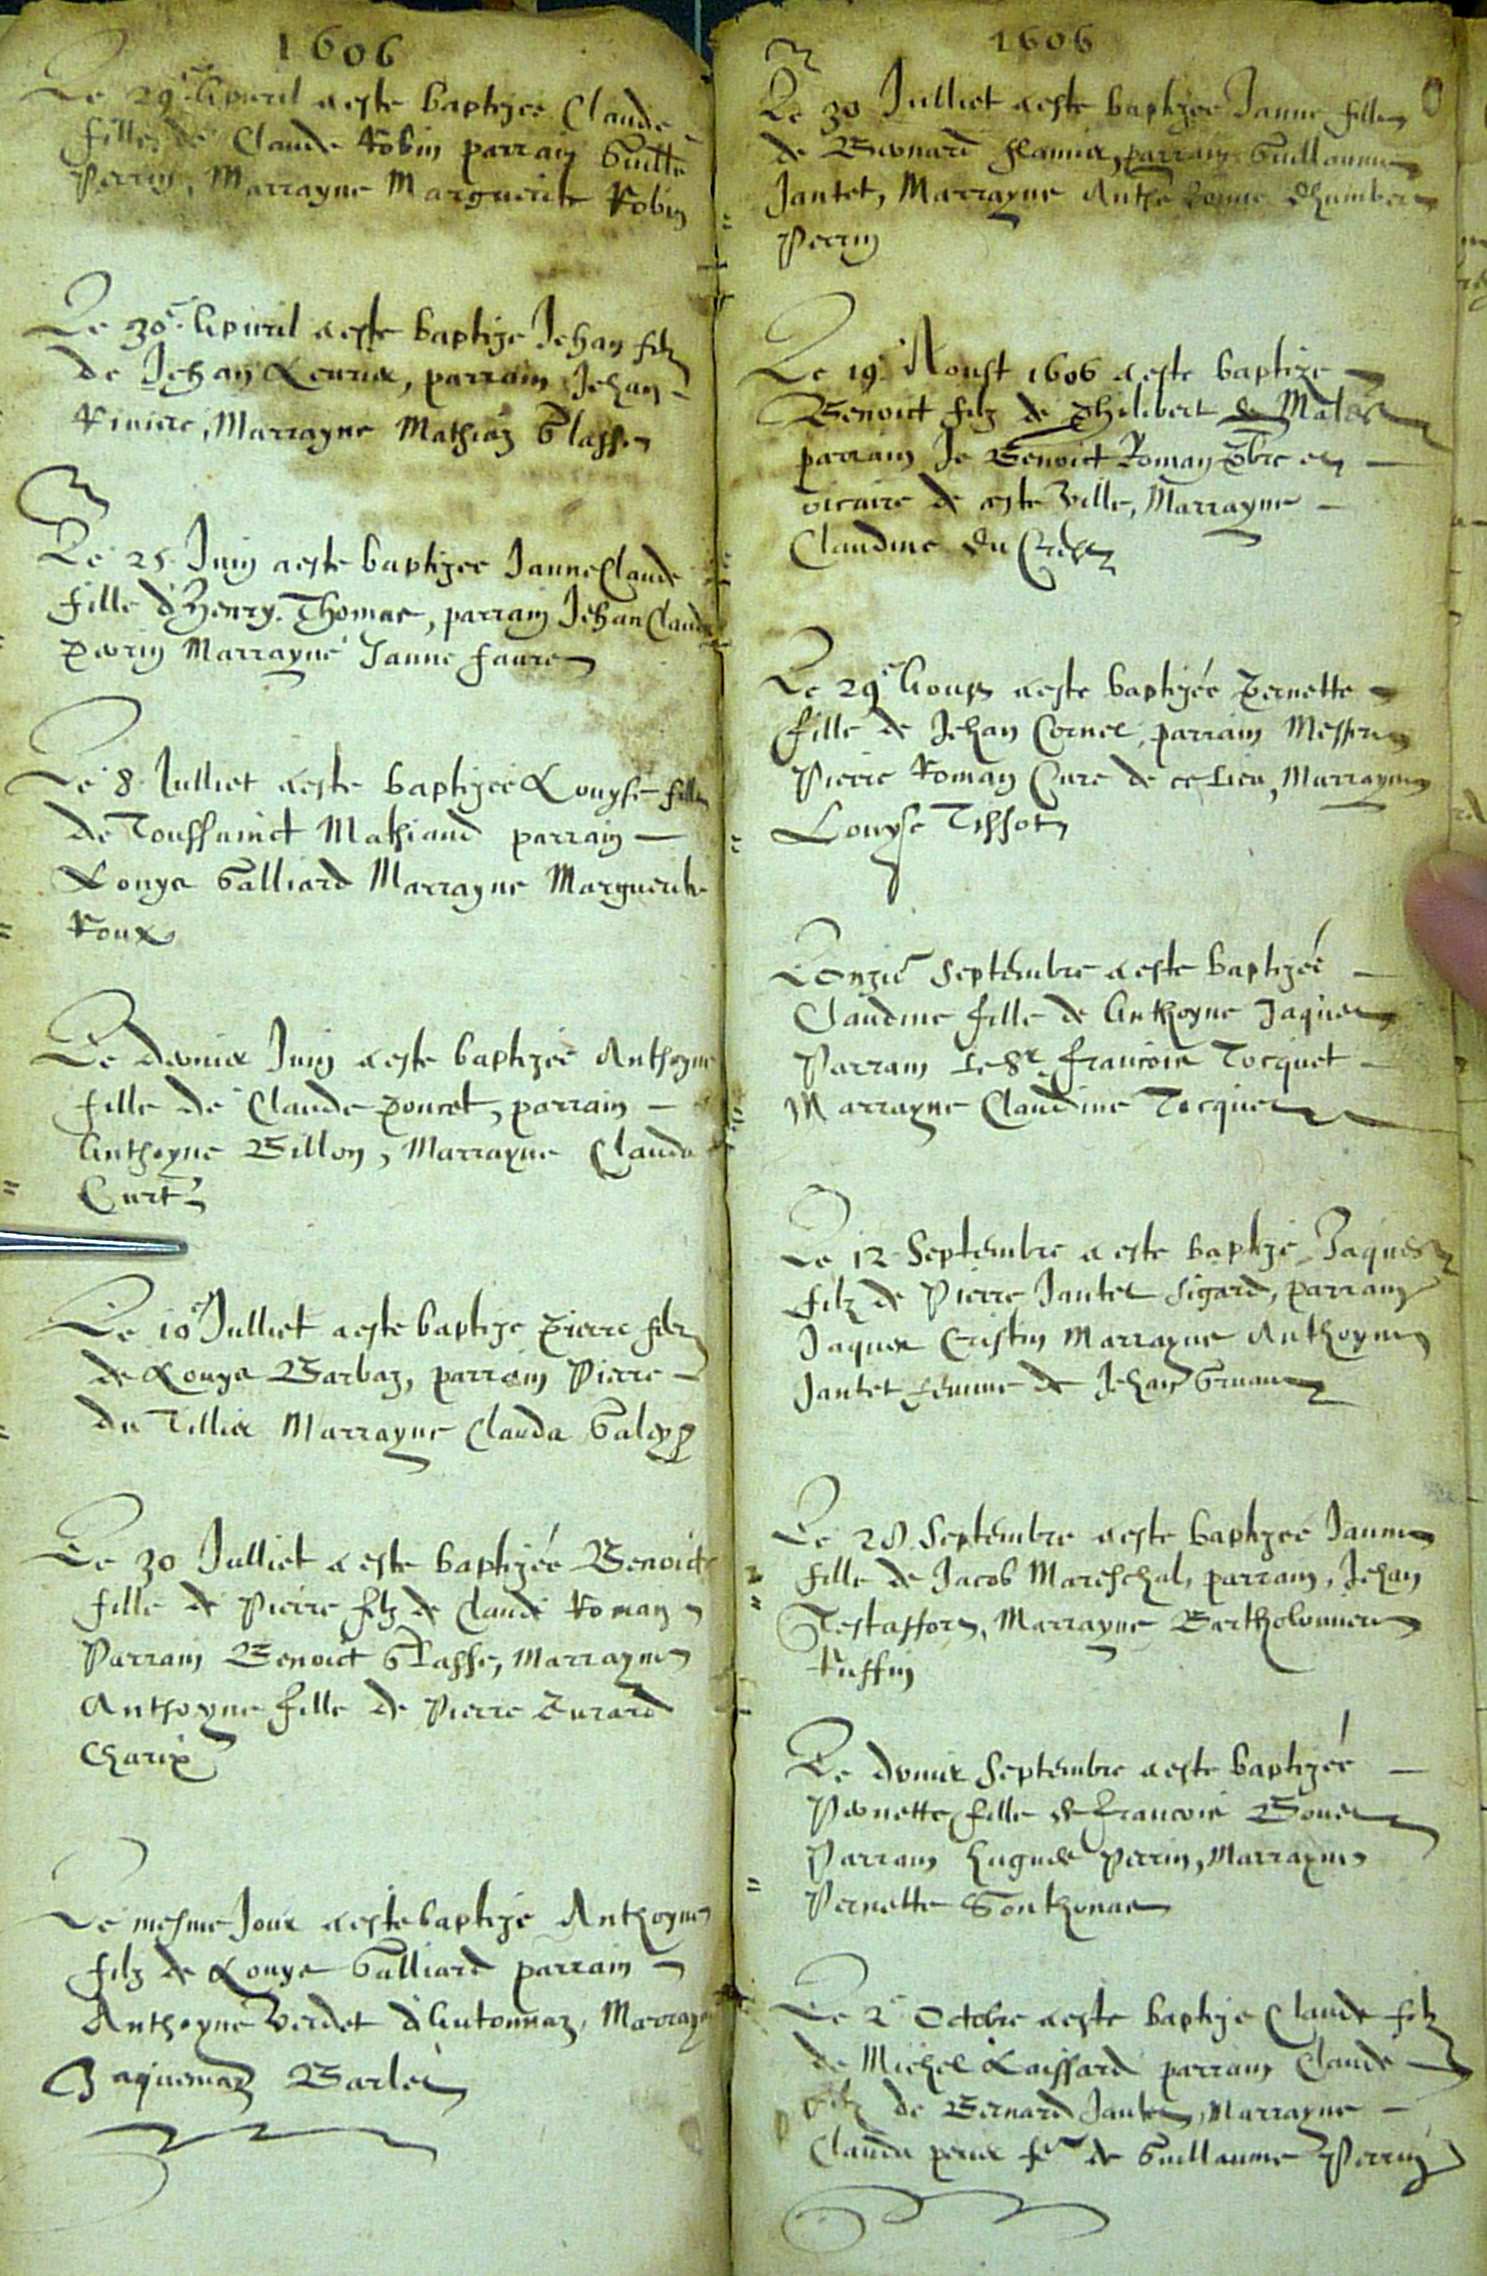 1606
Le 29e Apvril a esté baptizée Claude
fille de Claude Robin parrain Guille
Perrin, Marrayne Marguerite Robin
Le 30e Apvril a esté baptizé Jehan filz
de Jehan parrain Jehan
Riviere, Marrayne Mathiaz Glasse
Le 25 Juin a esté baptizée Janne Claude
fille d'Henry Thomas, parrain Jehan Claude
Perrin Marrayne Janne Faure
Le 8 Julliet a esté baptizée Louyse fille
de Toussainct Mathiaud parrain
Louys Galliard Marrayne Marguerite
Roux
Le dernier Juin a esté baptizée Anthoyne
fille de Claude Poncet, parrain
Anthoyne Billon, Marrayne Clauda
Curt
Le 10e Julliet a esté baptizé Pierre filz
de Louys Barbaz, parrain Pierre
du Tillier Marrayne Clauda
Le 30 Julliet a esté baptizée Benoicte
fille de Pierre filz de Claude Roman
Parrain Benoict Glasse, Marrayne
Anthoyne fille de Pierre Curard
Charix
Le mesme Jour a esté baptizé Anthoyne
filz de Louys Galliard parrain
Anthoyne Verdet d'Autonnaz, Marrayne
Jaquemaz Barlet
1606
Le 30 Julliet a esté baptizée Janne fille
de Bernard parrain Guillaume
Jantet, Marrayne
Perrin
Le 19 Aoust 1606 a esté baptizé
Benoict filz de Philibert de
parrain Je Benoict Roman pbre et
vicaire de ceste Ville, Marrayne
Claudine du
Le 29e Aoust a esté baptizée Pernette
fille de Jehan Cornet, parrain Messire
Pierre Roman Curé de ce Lieu, Marrayne
Louyse Tissot
L'Onzie Septembre a esté baptizée
Claudine fille de Anthoyne Jaquet
Parrain Le Sr Francois Tocquet
Marrayne Claudine Tocquet
Le 12 Septembre a esté baptizé Jaques
filz de Pierre Jantet Sigard, parrain
Jaques Cristin Marrayne Anthoyne
Jantet femme de Jehan
Le 28 Septembre a esté baptizée Janne
fille de Jacob Mareschal, parrain, Jehan
Testaffort, Marrayne Bartholomiere
Ruffin
Le dernier Septembre a esté baptizée
Pernette fille de Francois
Parrain Hugues Perrin, Marrayne
Pernette Gonthonas
Le 2e Octobre a esté baptizé Claude filz
de Michel Laissard parrain Claude
filz de Bernard Jantet, Marrayne
Clauda fe de Guillaume Perrin